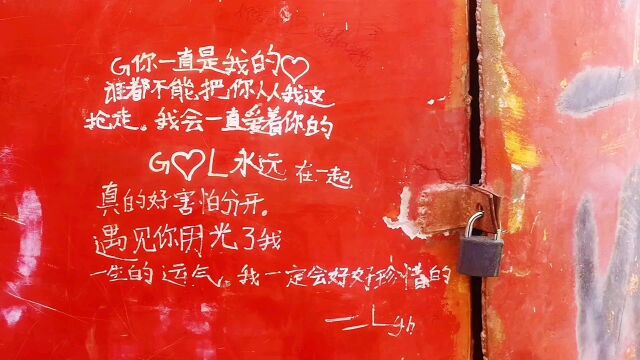 G你一直是我的♡
谁都不能把你从我这
抢走。我会一直爱着你的
G♡L永远在一起
真的好害怕分开。
遇见你用光了我
一生的运气,我一定会好好珍惜的
——Lgh